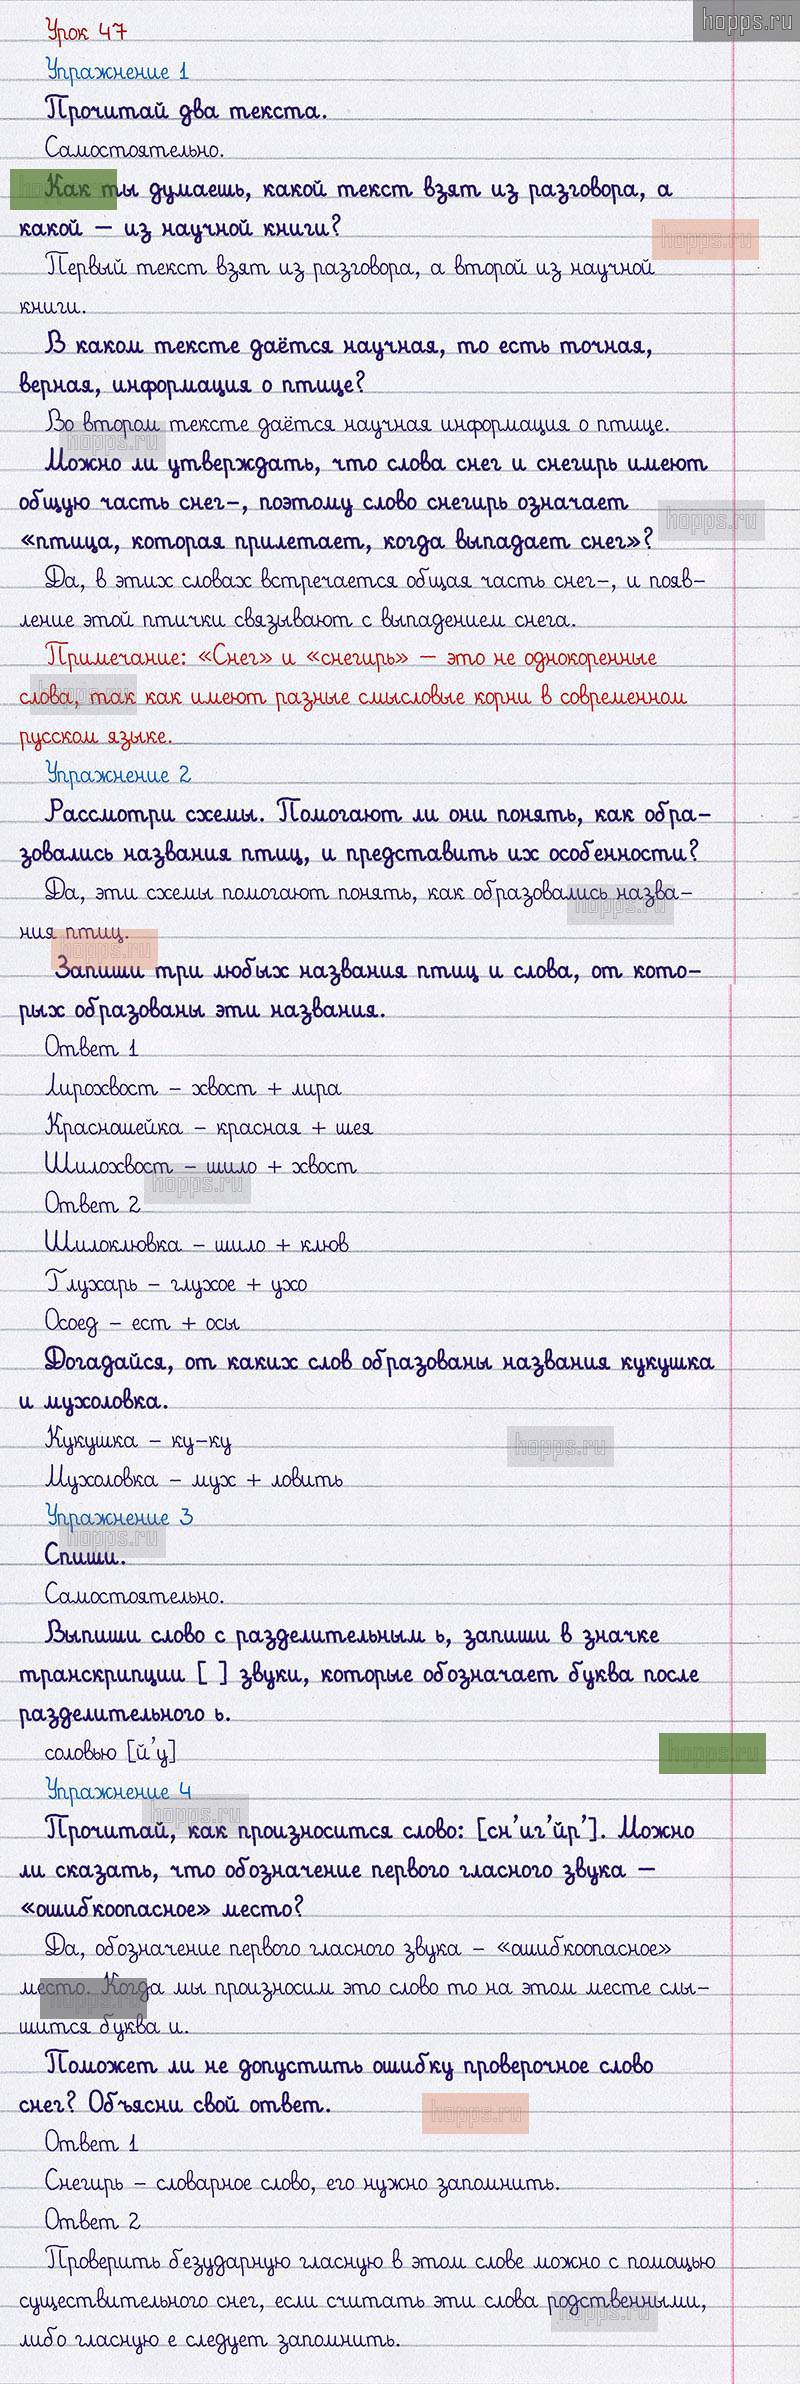 hopps.ru
Урок 47
Упражнение 1
Прочитай два текста.
Самостоятельно.
Как ты думаешь, какой текст взят из разговора, а
какой – из научной книги?
hopps.ru
Первый текст взят из разговора, а второй из научной
книги.
В каком тексте даётся научная, то есть точная,
верная, информация о птице?
Во втором тексте даётся научная информация о птице.
hopps.ru
Можно ли утверждать, что слова снег и снегирь имеют
общую часть снег-, поэтому слово снегирь означает
hopps.ru
«птица, которая прилетает, когда выпадает снег»?
Да, в этих словах встречается общая часть снег-, и появ-
ление этой птички связывают с выпадением снега.
Примечание: «Снег» и «снегирь» – это не однокоренные
слова, так как имеют разные смысловые корни в современном
hopps.ru
русском языке.
Упражнение 2
Рассмотри схемы. Помогают ли они понять, как обра-
зовались названия птиц, и представить их особенности?
Да, эти схемы помогают понять, как образовались назва-
hopps.ru
ния птиц.
hopps.ru
Запиши три любых названия птиц и слова, от кото-
рых образованы эти названия.
Ответ 1
Лирохвост – хвост + лира
Красношейка – красная + шея
Шилохвост – шило + хвост
hopps.ru
Ответ 2
Шилоклювка – шило + клюв
Глухарь – глухое + ухо
Осоед – ест + осы
Догадайся, от каких слов образованы названия кукушка
и мухоловка.
Кукушка – ку-ку
hopps.ru
Мухоловка – мух + ловить
Упражнение 3
hopps.ru
Спиши.
Самостоятельно.
Выпиши слово с разделительным ь, запиши в значке
транскрипции [ ] звуки, которые обозначает буква после
разделительного ь.
соловью [й’у]
hopps.ru
Упражнение 4
hopps.ru
Прочитай, как произносится слово: [сн’иг’йр’]. Можно
ли сказать, что обозначение первого гласного звука –
«ошибкоопасное» место?
Да, обозначение первого гласного звука – «ошибкоопасное»
место. Когда мы произносим это слово то на этом месте слы-
hopps.ru
шится буква и.
Поможет ли не допустить ошибку проверочное слово
снег? Объясни свой ответ.
hopps.ru
Ответ 1
Снегирь – словарное слово, его нужно запомнить.
Ответ 2
Проверить безударную гласную в этом слове можно с помощью
существительного снег, если считать эти слова родственными,
hopps.ru
либо гласную е следует запомнить.